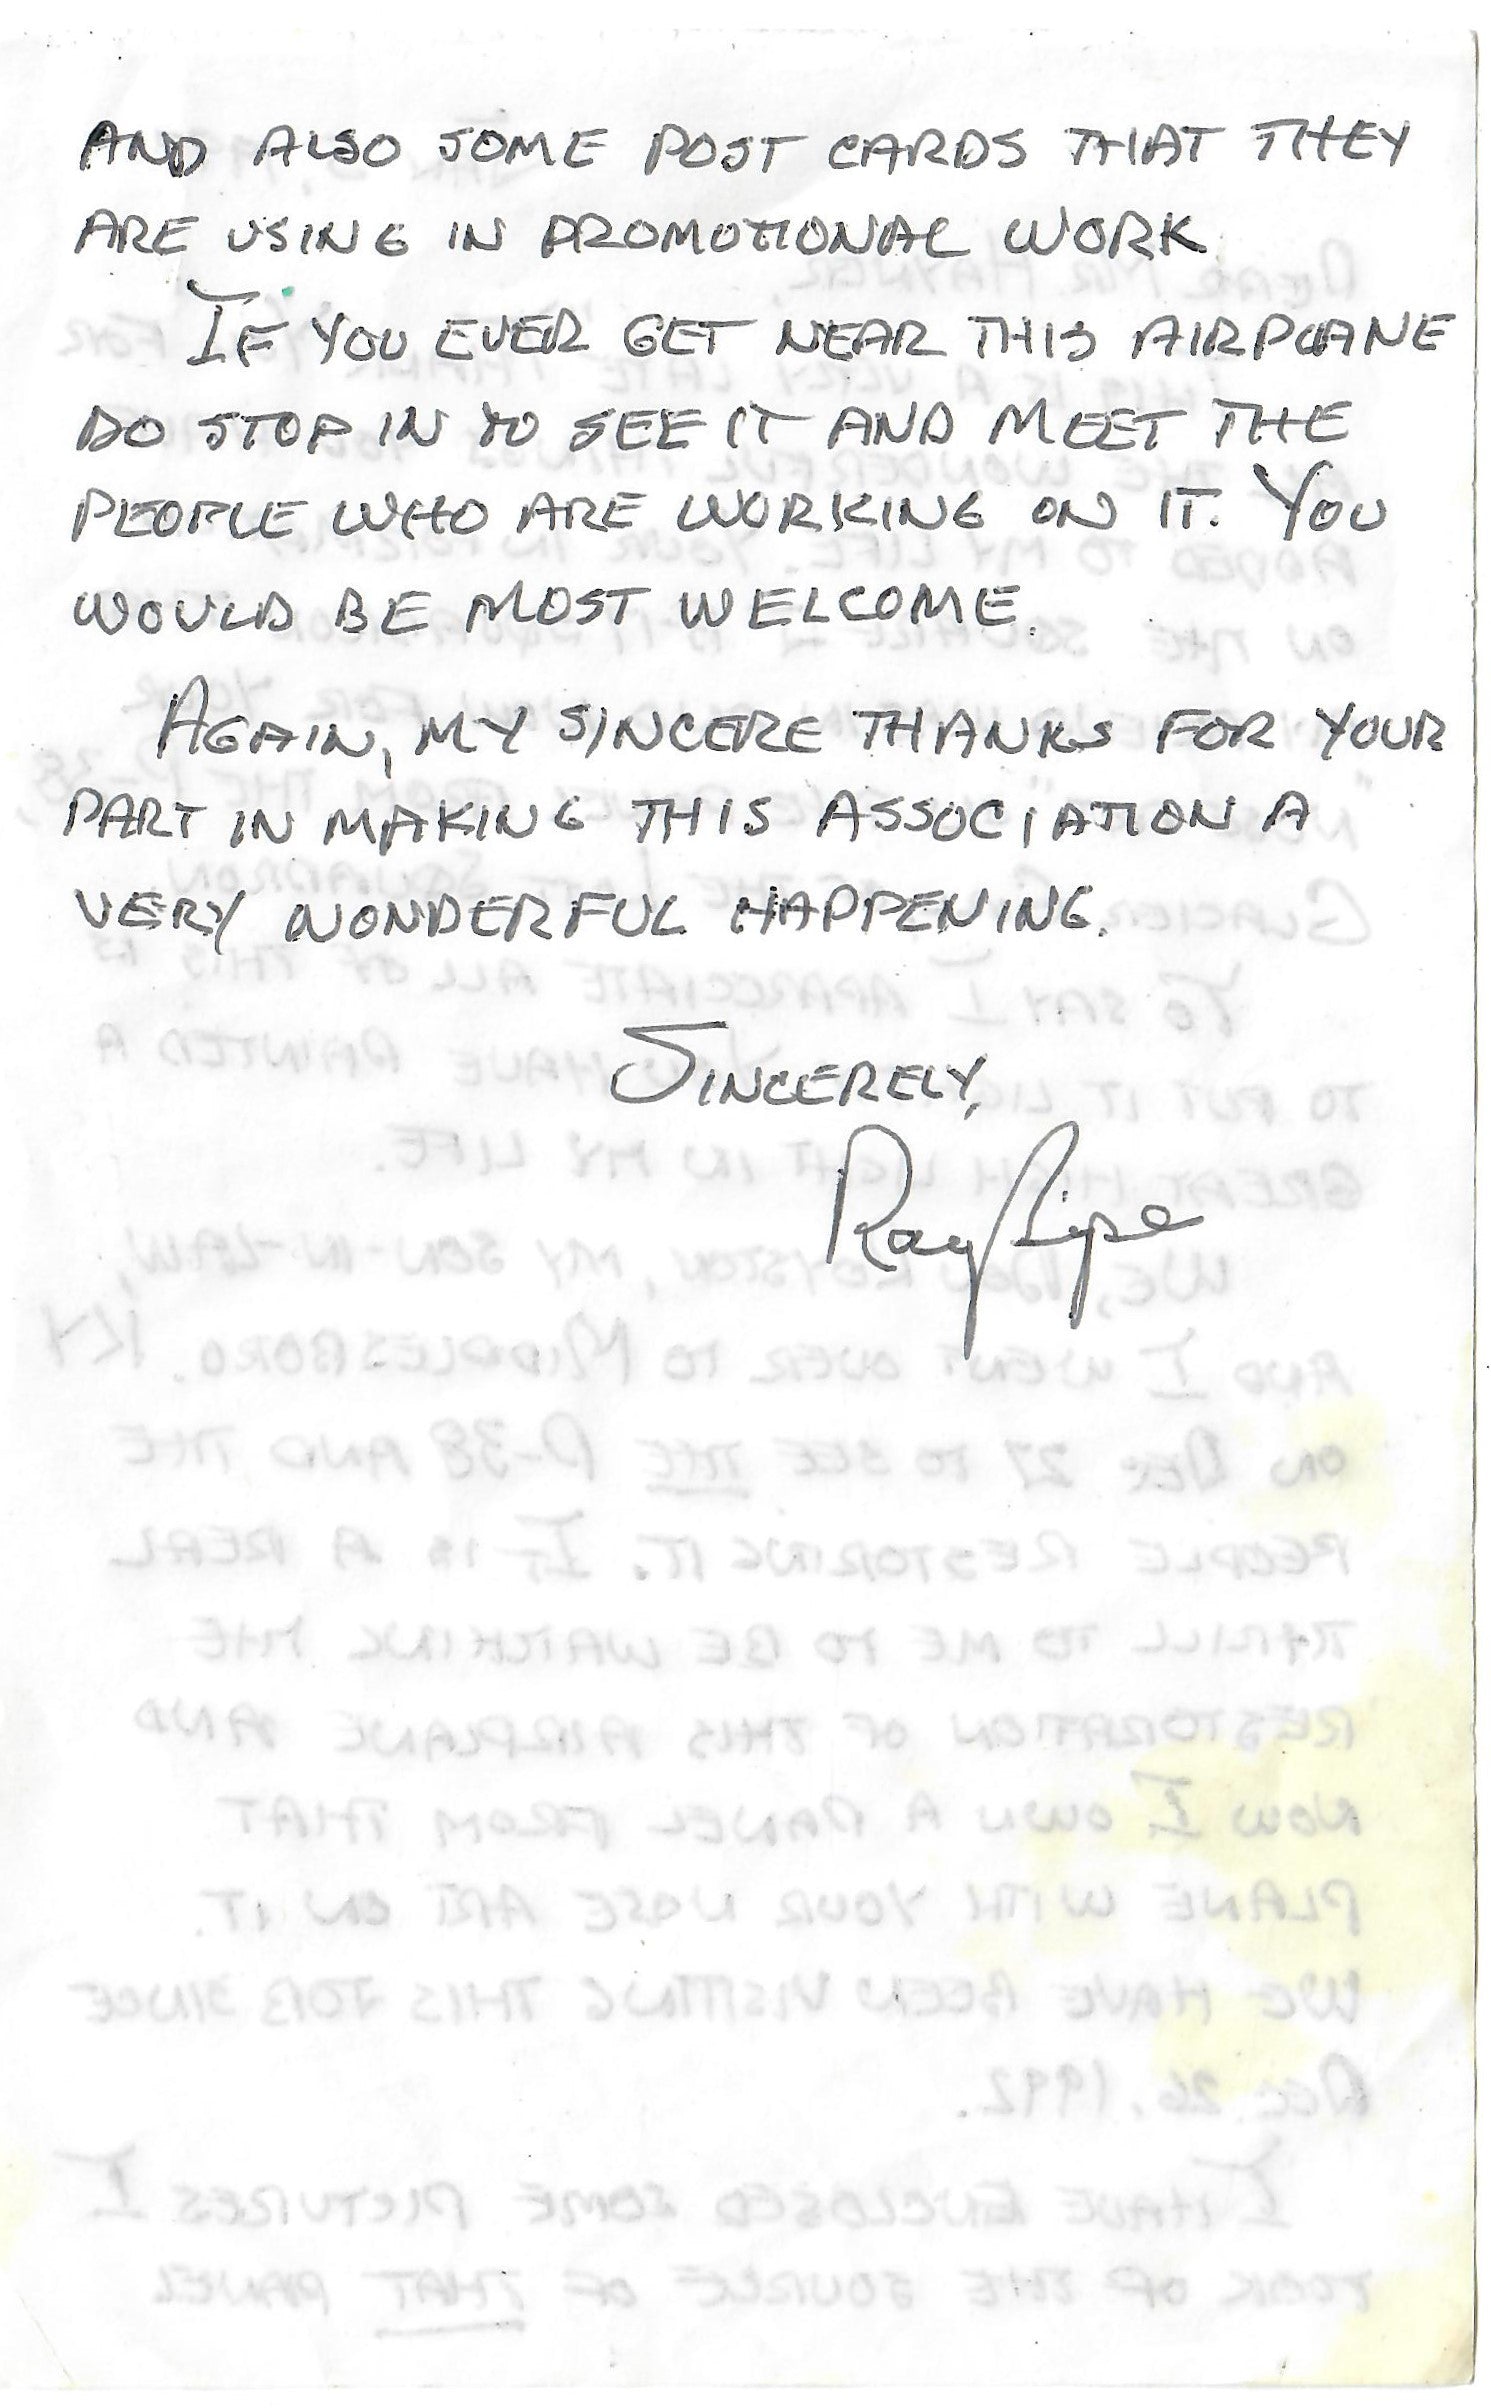 AND ALSO SOME POST CARDS THAT THEY
ARE USING IN PROMOTIONAL WORK
IF YOU EVER GET NEAR THIS AIRPLANE
DO STOP IN TO SEE IT AND MEET THE
PEOPLE WHO ARE WORKING ON IT. YOU
WOULD BE MOST WELCOME.
AGAIN, MY SINCERE THANKS FOR YOUR
PART IN MAKING THIS ASSOCIATION A
VERY WONDERFUL HAPPENING.
SINCERELY,
Ray Pipe